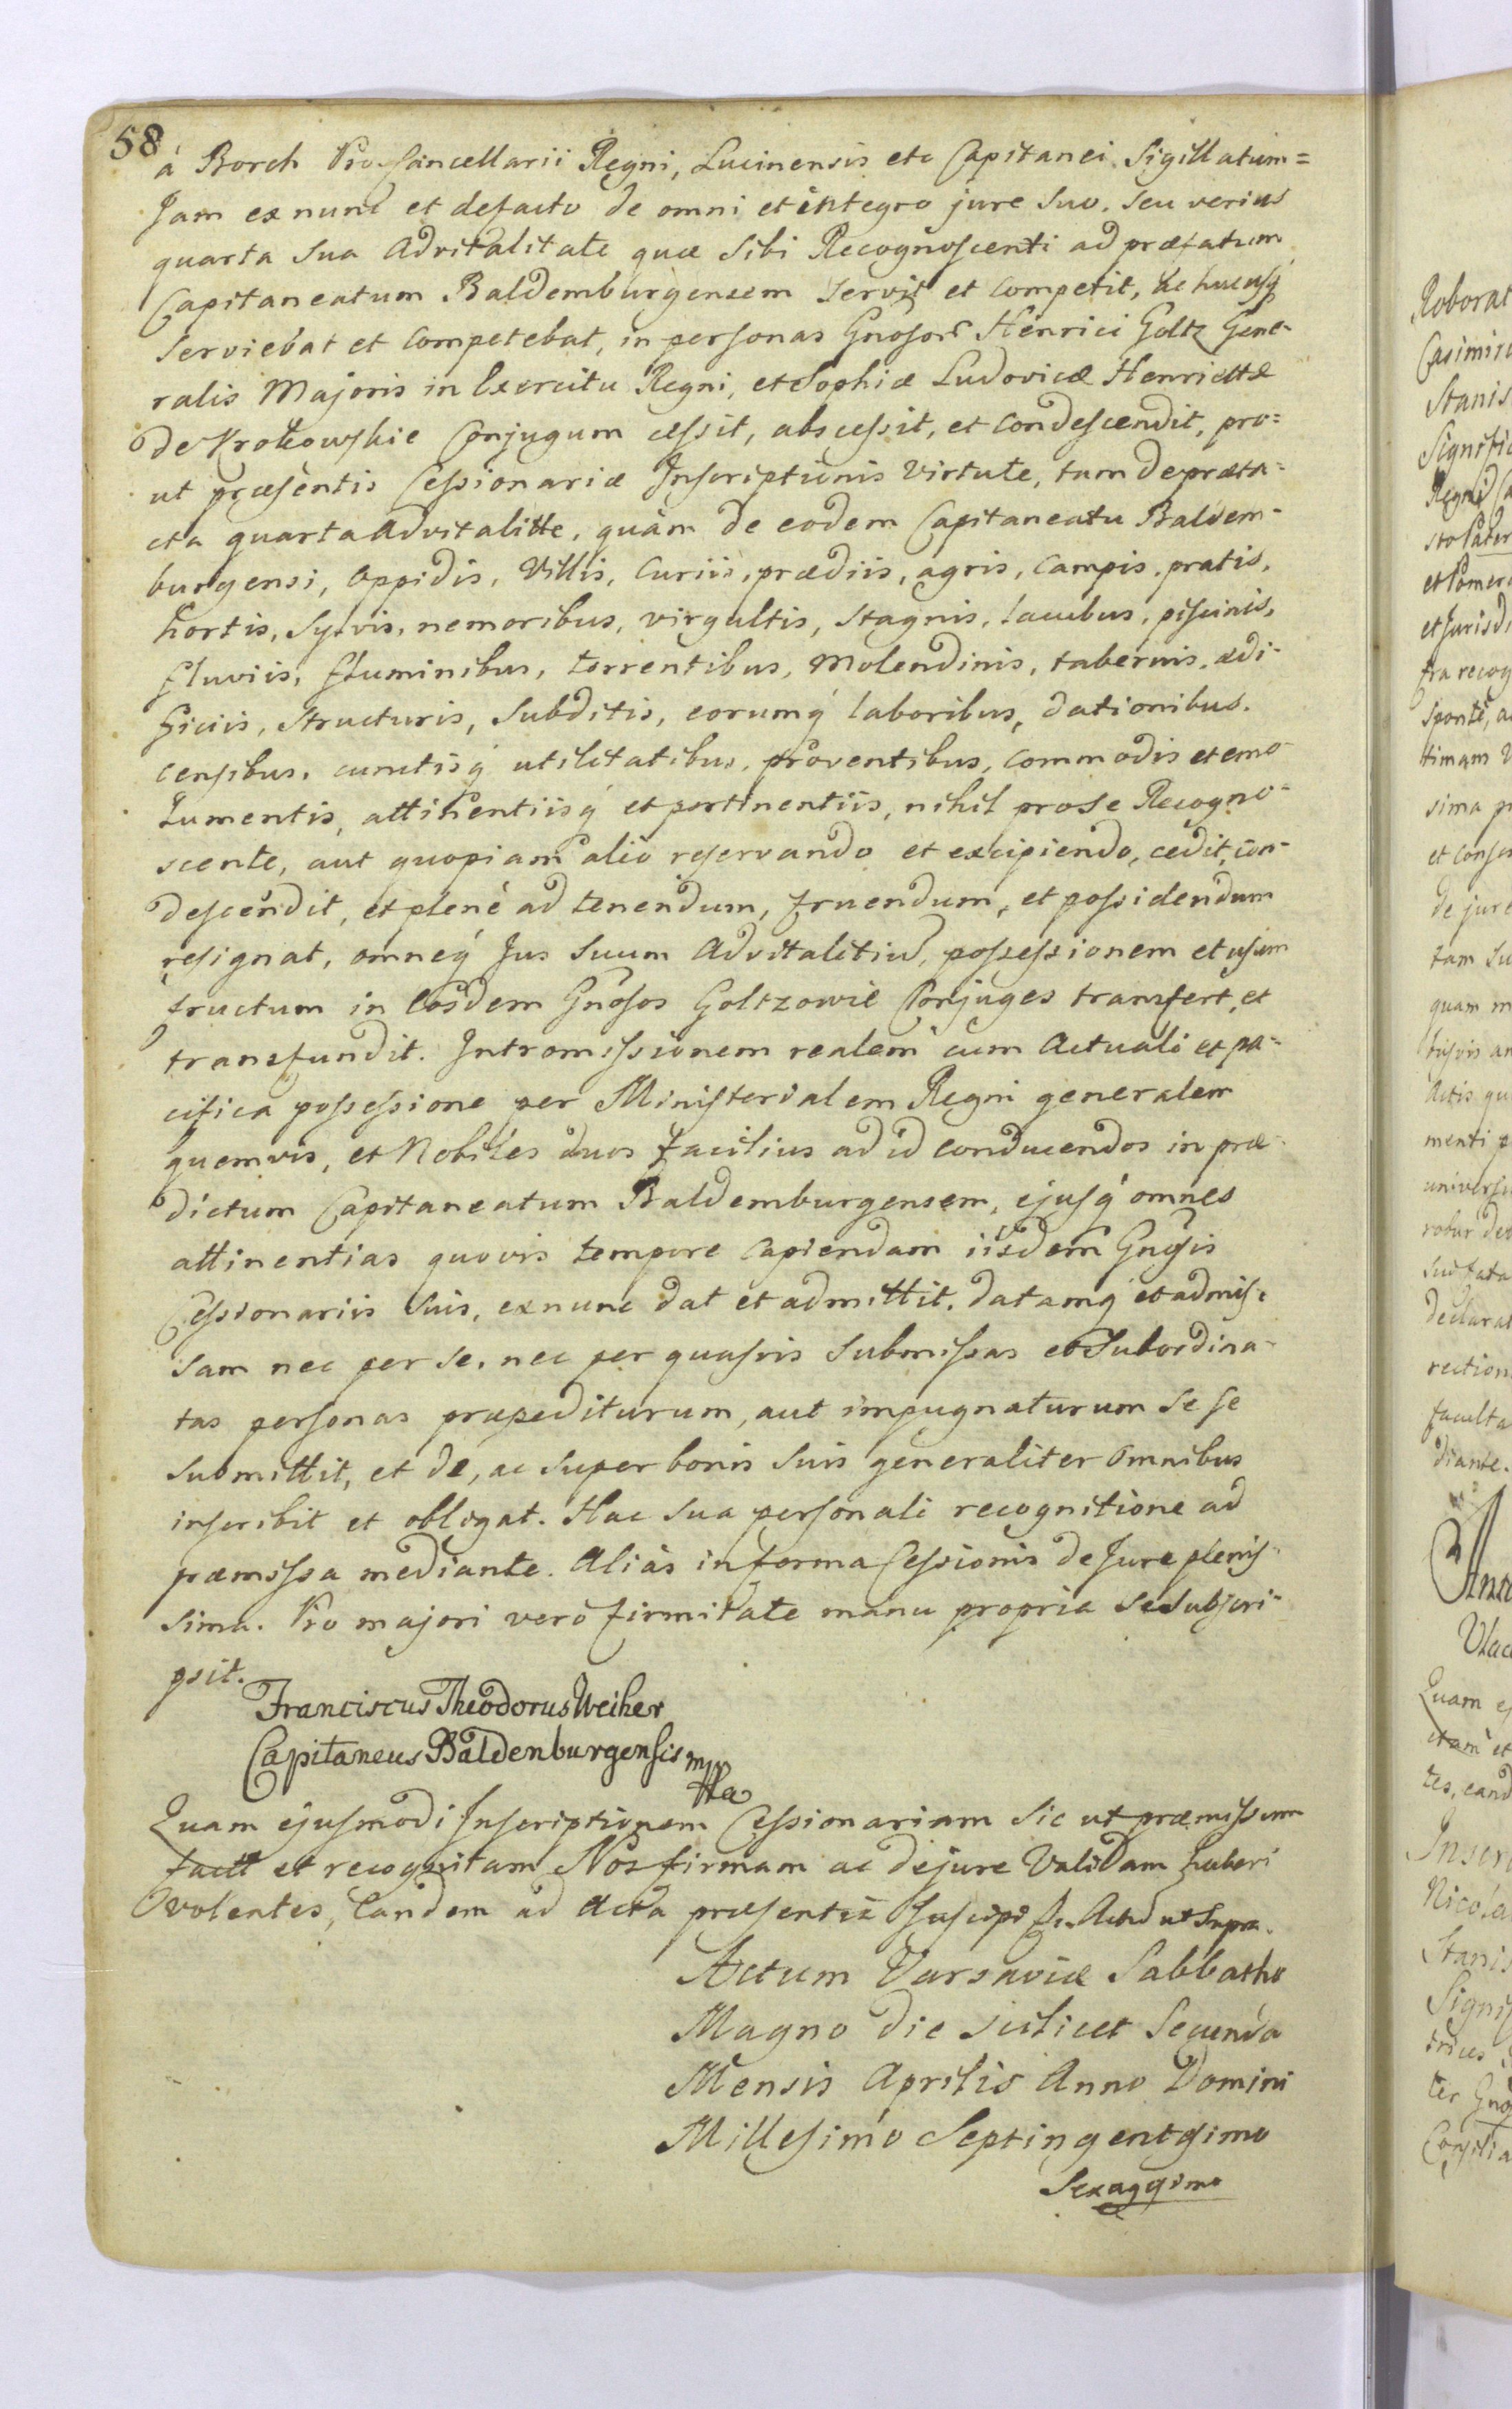 58
á Borch ProCancellarii Regni, Lucinensis etc Capitanei Sigillatum=
Jam exnunc et defacto de omni et integro jure Suo. Seu verius
quarta Sua Advitalitate quæ Sibi Recognoscenti ad præfatum
Capitaneatum Baldemburgensem Servit et Competit, ac hucusq́
Serviebat et Competebat, in personas Gnosor Henrici Goltz Gene-
ralis Majoris in Exercitu Regni, et Sophiæ Ludovicæ Henriettæ
de Krokowskie Conjugum cessit, abscessit, et Condescendit, pro=
ut præsentis Cessionariæ Inscriptionis Virtute, tam de præta=
cta quarta Advitalitte, quàm de eodem Capitaneatu Baldem-
burgensi, Oppidis, Villis, Curiis, prædiis, agris, Campis, pratis,
hortis, Sylvis, nemoribus, virgultis, Stagnis, lacubus, piscinis,
fluviis, fluminibus, torrentibus, Molendinis, tabernis, ædi-
ficiis, Structuris, Subditis, eorumq́ laboribus, dationibus.
censibus, cunctisq́ utilitatibus, proventibus, Commodis et emo-
lumentis, attinentiisq́ et pertinentiis, nihil pro se Recogno-
scente, aut quopiam alio reservando et excipiendo, cedit, con-
descendit, et plenè ad tenendum, fruendum, et possidendum
resignat, omneq́ Jus Suum Advitalitiũ, possessionem et usum
fructum in Eosdem Gnosos Goltzowie Conjuges transfert, et
transfundit. Intromissionem realem cum Actuali et pa-
cifica possessione per Ministerialem Regni generalem
quemvis, et Nobiles duos facilius ad id conducendos in præ-
dictum Capitaneatum Baldemburgensem, ejusq́ omnes
attinentias quovis tempore Capiendam iisdem Gnosis
Cessionariis Suis, exnunc dat et admittit. datamq́ et admis-
sam nec per se, nec per quasvis Submissas et Subordina-
tas personas præpediturum, aut impugnaturum Se se
Submittit, et de, ac Super bonis Suis generaliter Omnibus
inscribit et obligat. Hac Sua personali recognitione ad
præmissa mediante. Aliàs in forma Cessionis de Jure plenis-
sima. Pro majori verò firmitate manu propria Se Subscri-
psit.
Franciscus Theodorus Weiher
Capitaneus Baldenburgensis mppa
Quam ejusmodi Inscriptionem Cessionariam Sic ut præmissum
facit et recognitam Nos firmam ac de jure Validam haberi
volentes, Eandem ad Acta præsentia Suscipi Actũ ut Supra.
Actum Varsaviæ Sabbatho
Magno die scilicet Secunda
Mensis Aprilis Anno Domini
Millesimo Septingentesimo
Sexagesimo